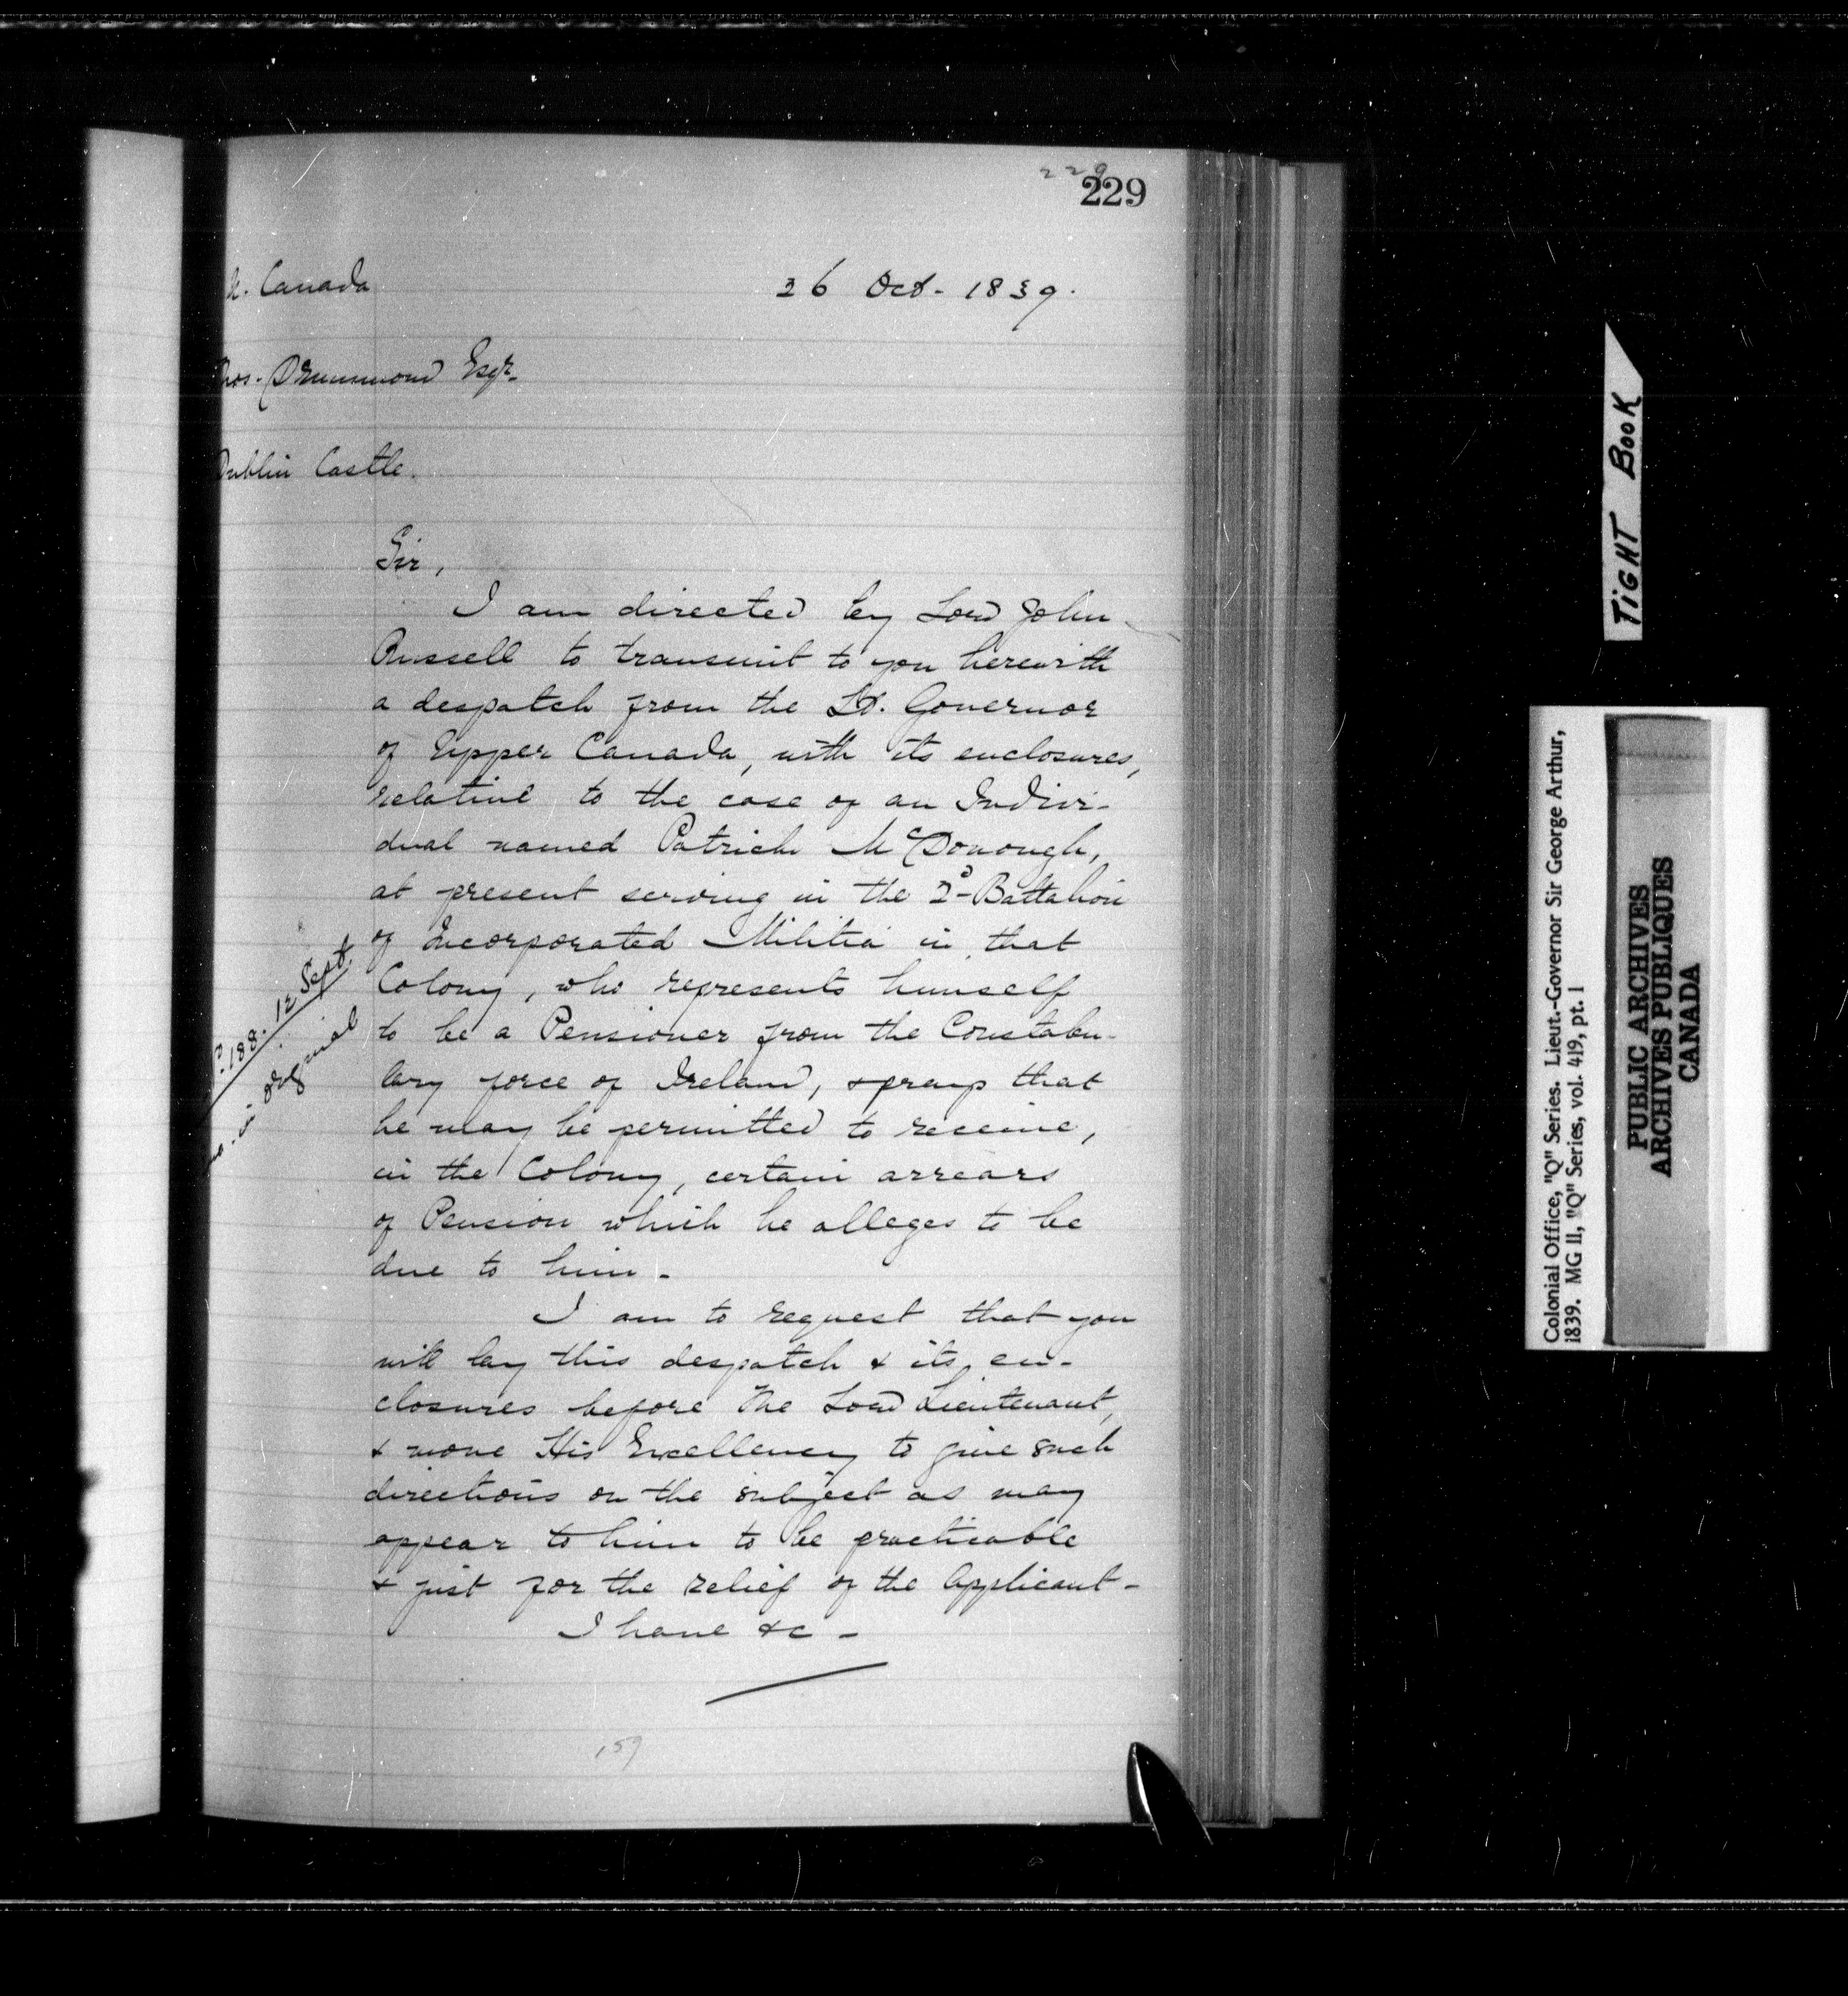 229
229
U. Canada
26 Oct. 1839.
Thos. Drummond Esqr.
Dublin Castle.
Sir,
I am directed by Lord John
Russell to transmit to you herewith
a despatch from the Lt. Governor
of Upper Canada, with its enclosures,
relative to the case of an Indivi-
dual named Patrick McDonough,
at present serving in the 2d Battalion
of Incorporated Militia in that
Colony, who represents himself
to be a Pensioner from the Constabu-
lary force of Ireland, & prays that
he may be permitted to receive,
in the Colony, certain arrears
of Pension which he alleges to be
due to him -
188. 12 Sept.
in original
I am to request that you
will lay this despatch & its en-
closures before The Lord Lieutenant,
& move His Excellency to give such
directions on the subject as may
appear to him to be practicable
& just for the relief of the Applicant -
I have &c -
159
TIGHT BOOK
Colonial Office, "Q" Series. Lieut.-Governor Sir George Arthur,
1839. MG 11, "Q" Series, vol. 419, pt. 1
PUBLIC ARCHIVES
ARCHIVES PUBLIQUES
CANADA